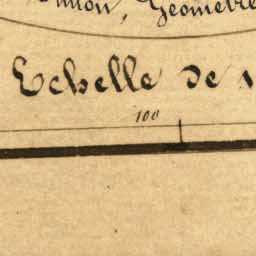 Géomètre
Echelle de
100